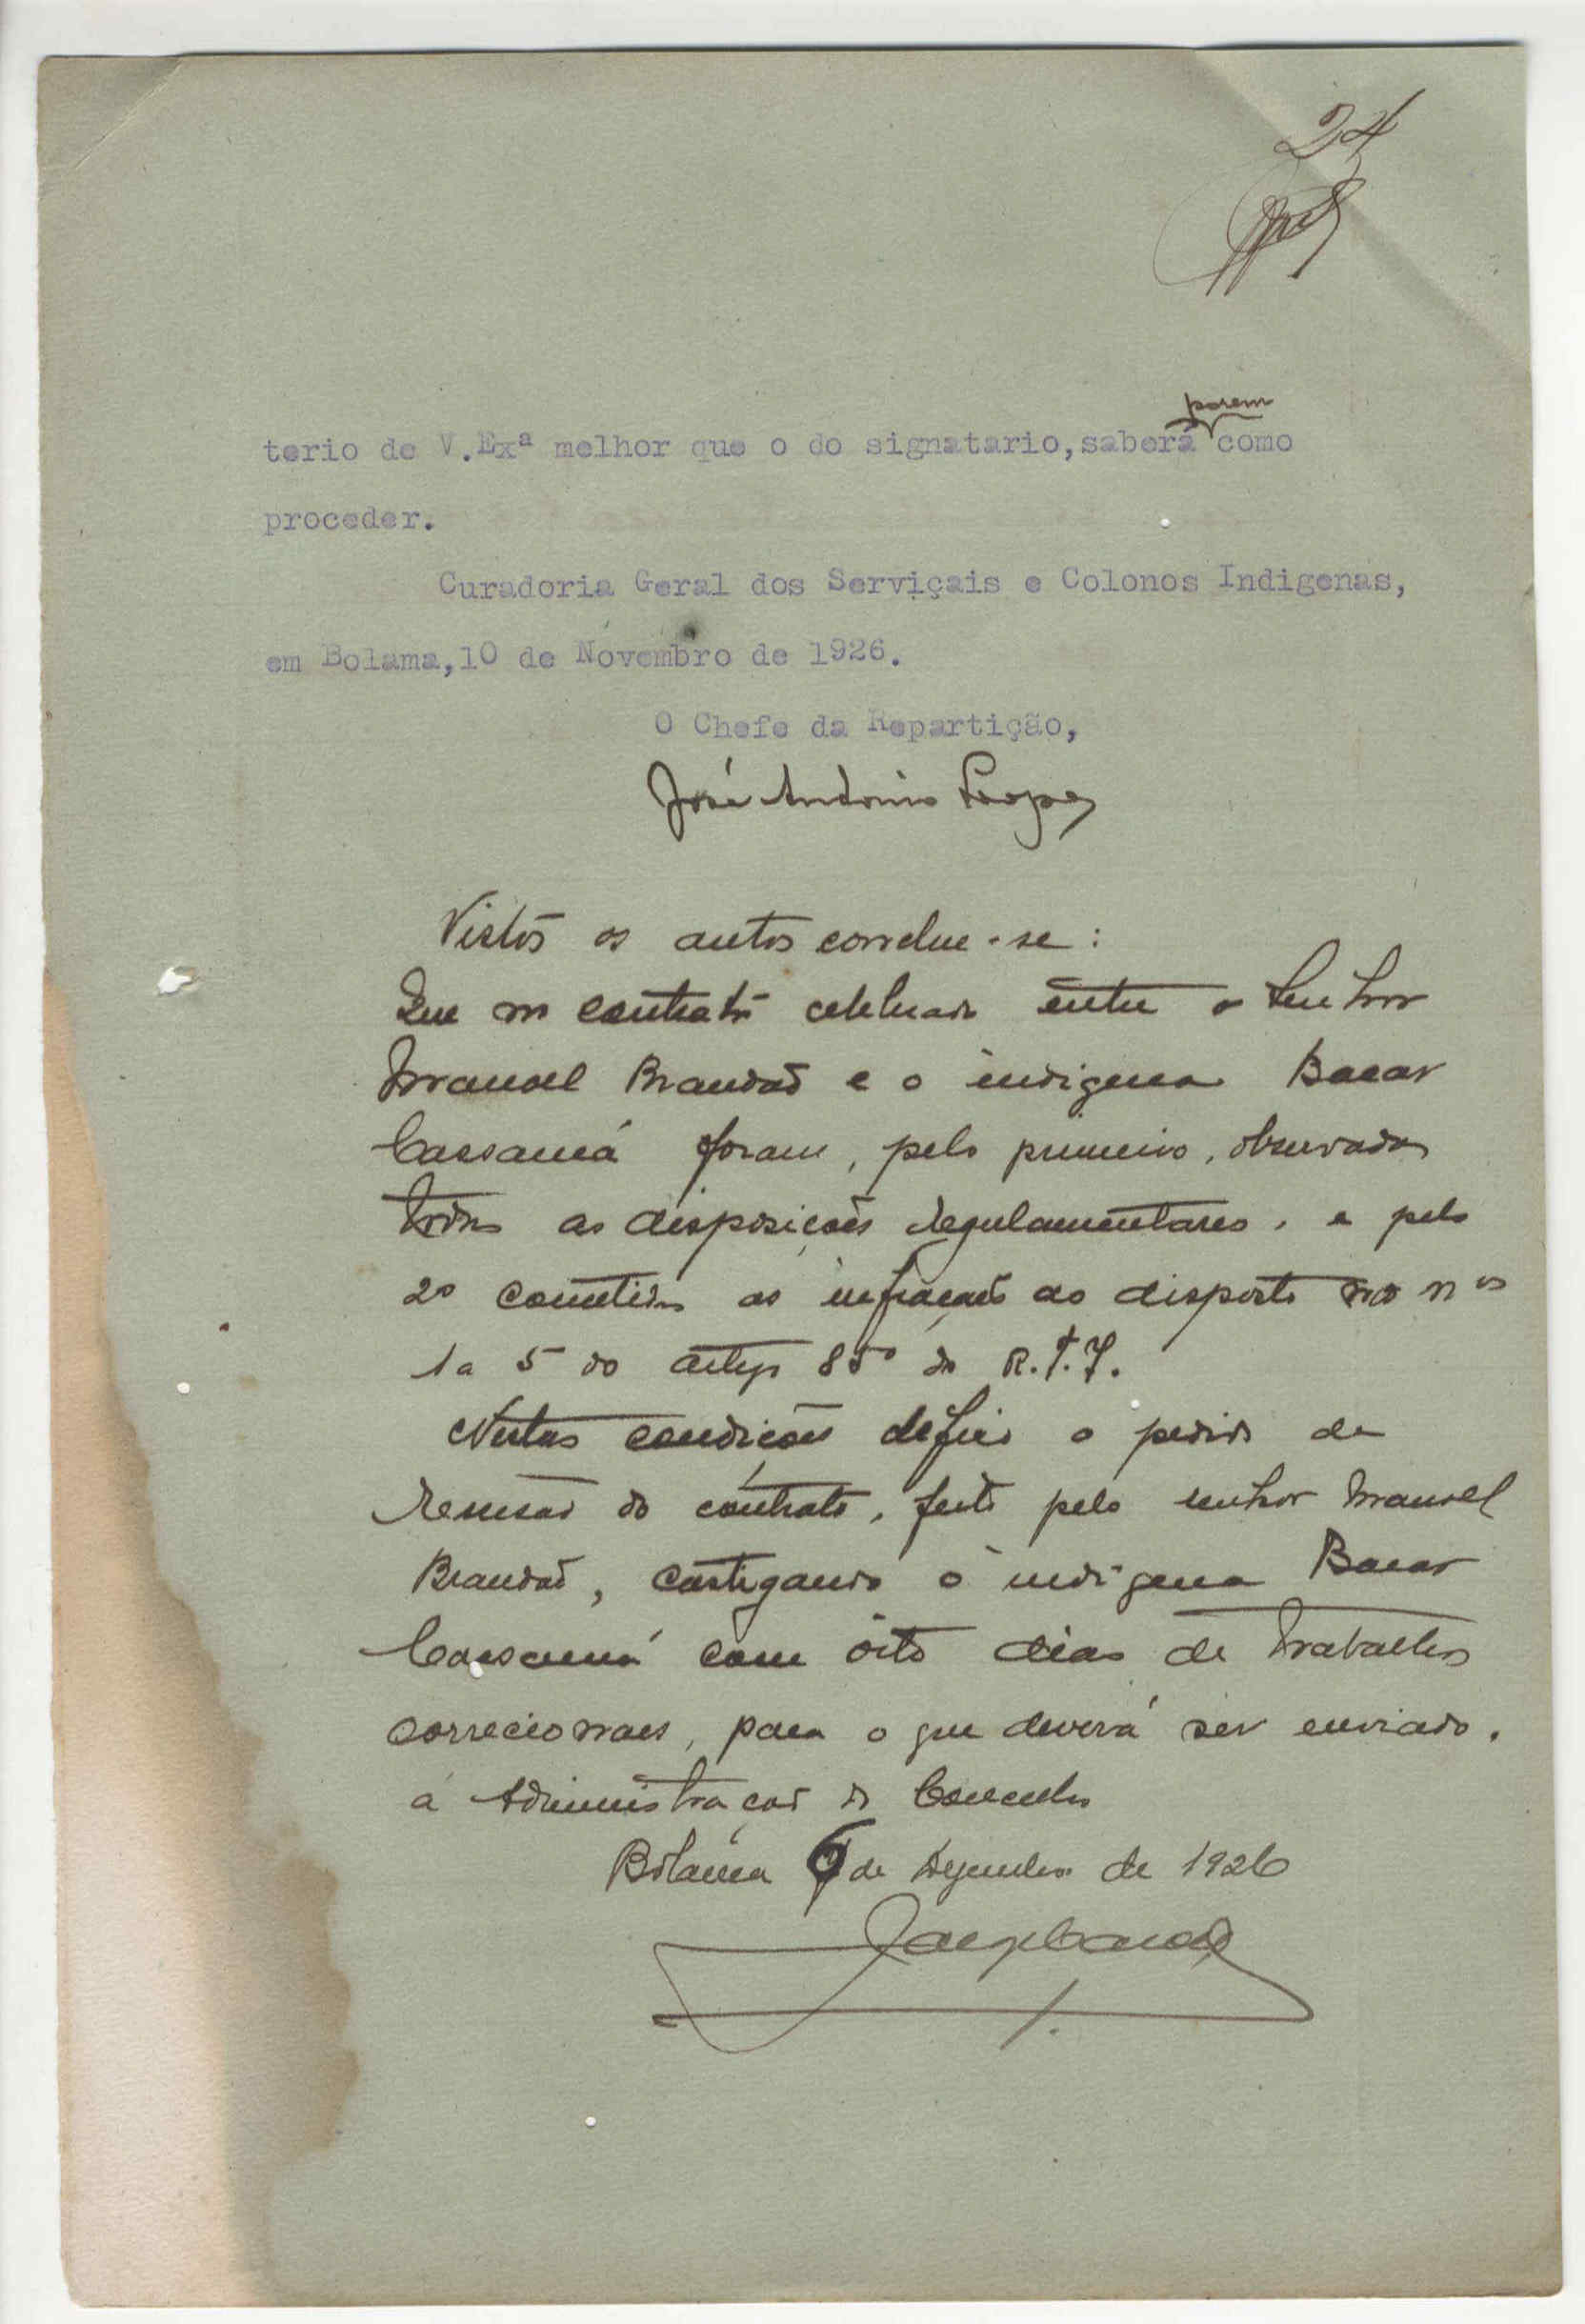 24
porem
terio de V.Exª melhor que o do signatario, saberá como
proceder.
Curadoria Geral dos Serviçais e Colonos Indigenas,
em Bolama, 10 de Novembro de 1926.
O Chefe da Repartição,
José Antonio Lopes
Vistos os autos conclue-se:
Que no contrato celebrado entre o Senhor
Manoel Brandão e o indigena Bacar
Cassamá foram, pelo primeiro, observadas
todas as disposições regulamentares, e pelo
2º cometidas as infrações ao disposto nos nºs
1 a 5 do artigo 85º do R.T.I.
Nestas condições defiro o pedido de
rescisão do contrato, feito pelo senhor Manoel
Brandão, castigando o indigena Bacar
Cassamá com oito dias de trabalhos
correcionaes, para o que deverá ser enviado
á Administração do Concelho
Bolama 6 de Dezembro de 1926